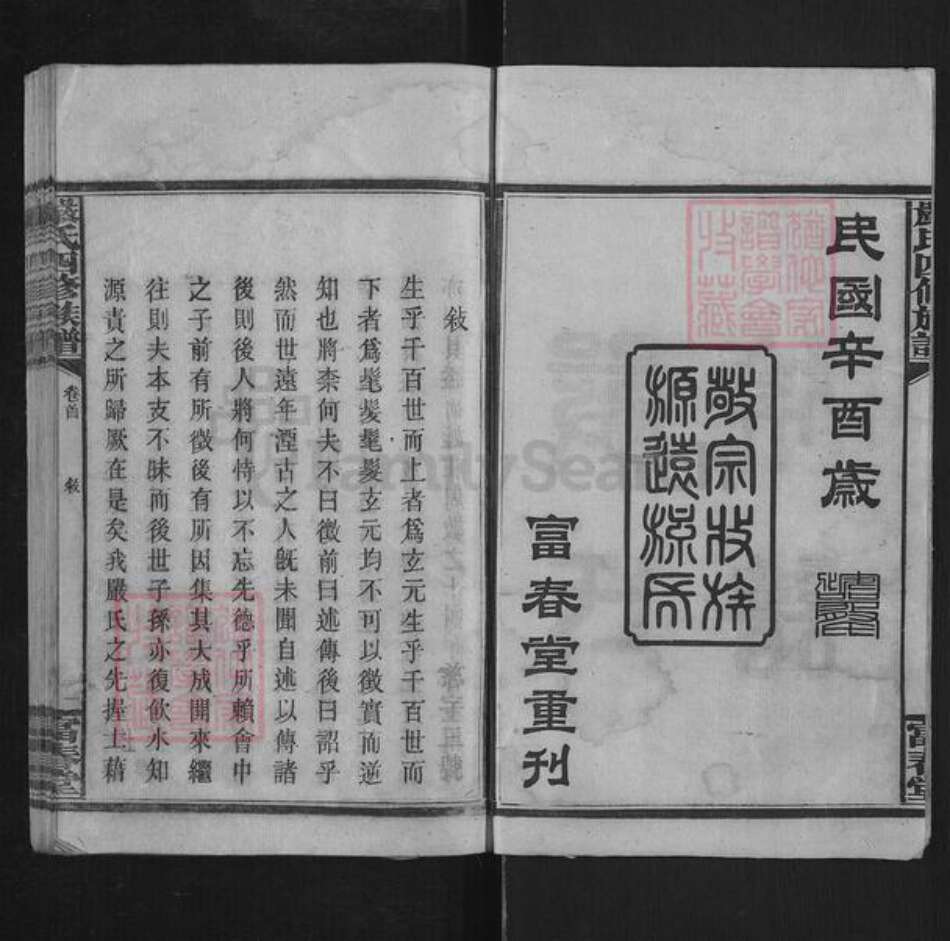 嚴氏四修族譜
富春堂
民國辛酉歲
敬宗收族
源遠派長
富春堂重刊
敍
生乎千百世而上者爲玄元生乎千百世而
下者爲髦髮髦髮玄元均不可以徵實而逆
知也將柰何夫不曰徵前曰述傳後曰詔乎
然而世遠年湮古之人旣未聞自述以傳諸
後則後人將何恃以不忘先德乎所賴會中
之子前有所徵後有所因集其大成開來繼
往則夫本支不昧而後世子孫亦復飲水知
源責之所歸厥在是矣我嚴氏之先握土藉
嚴氏四修族譜
卷首
敍
富春堂
FamilySearch